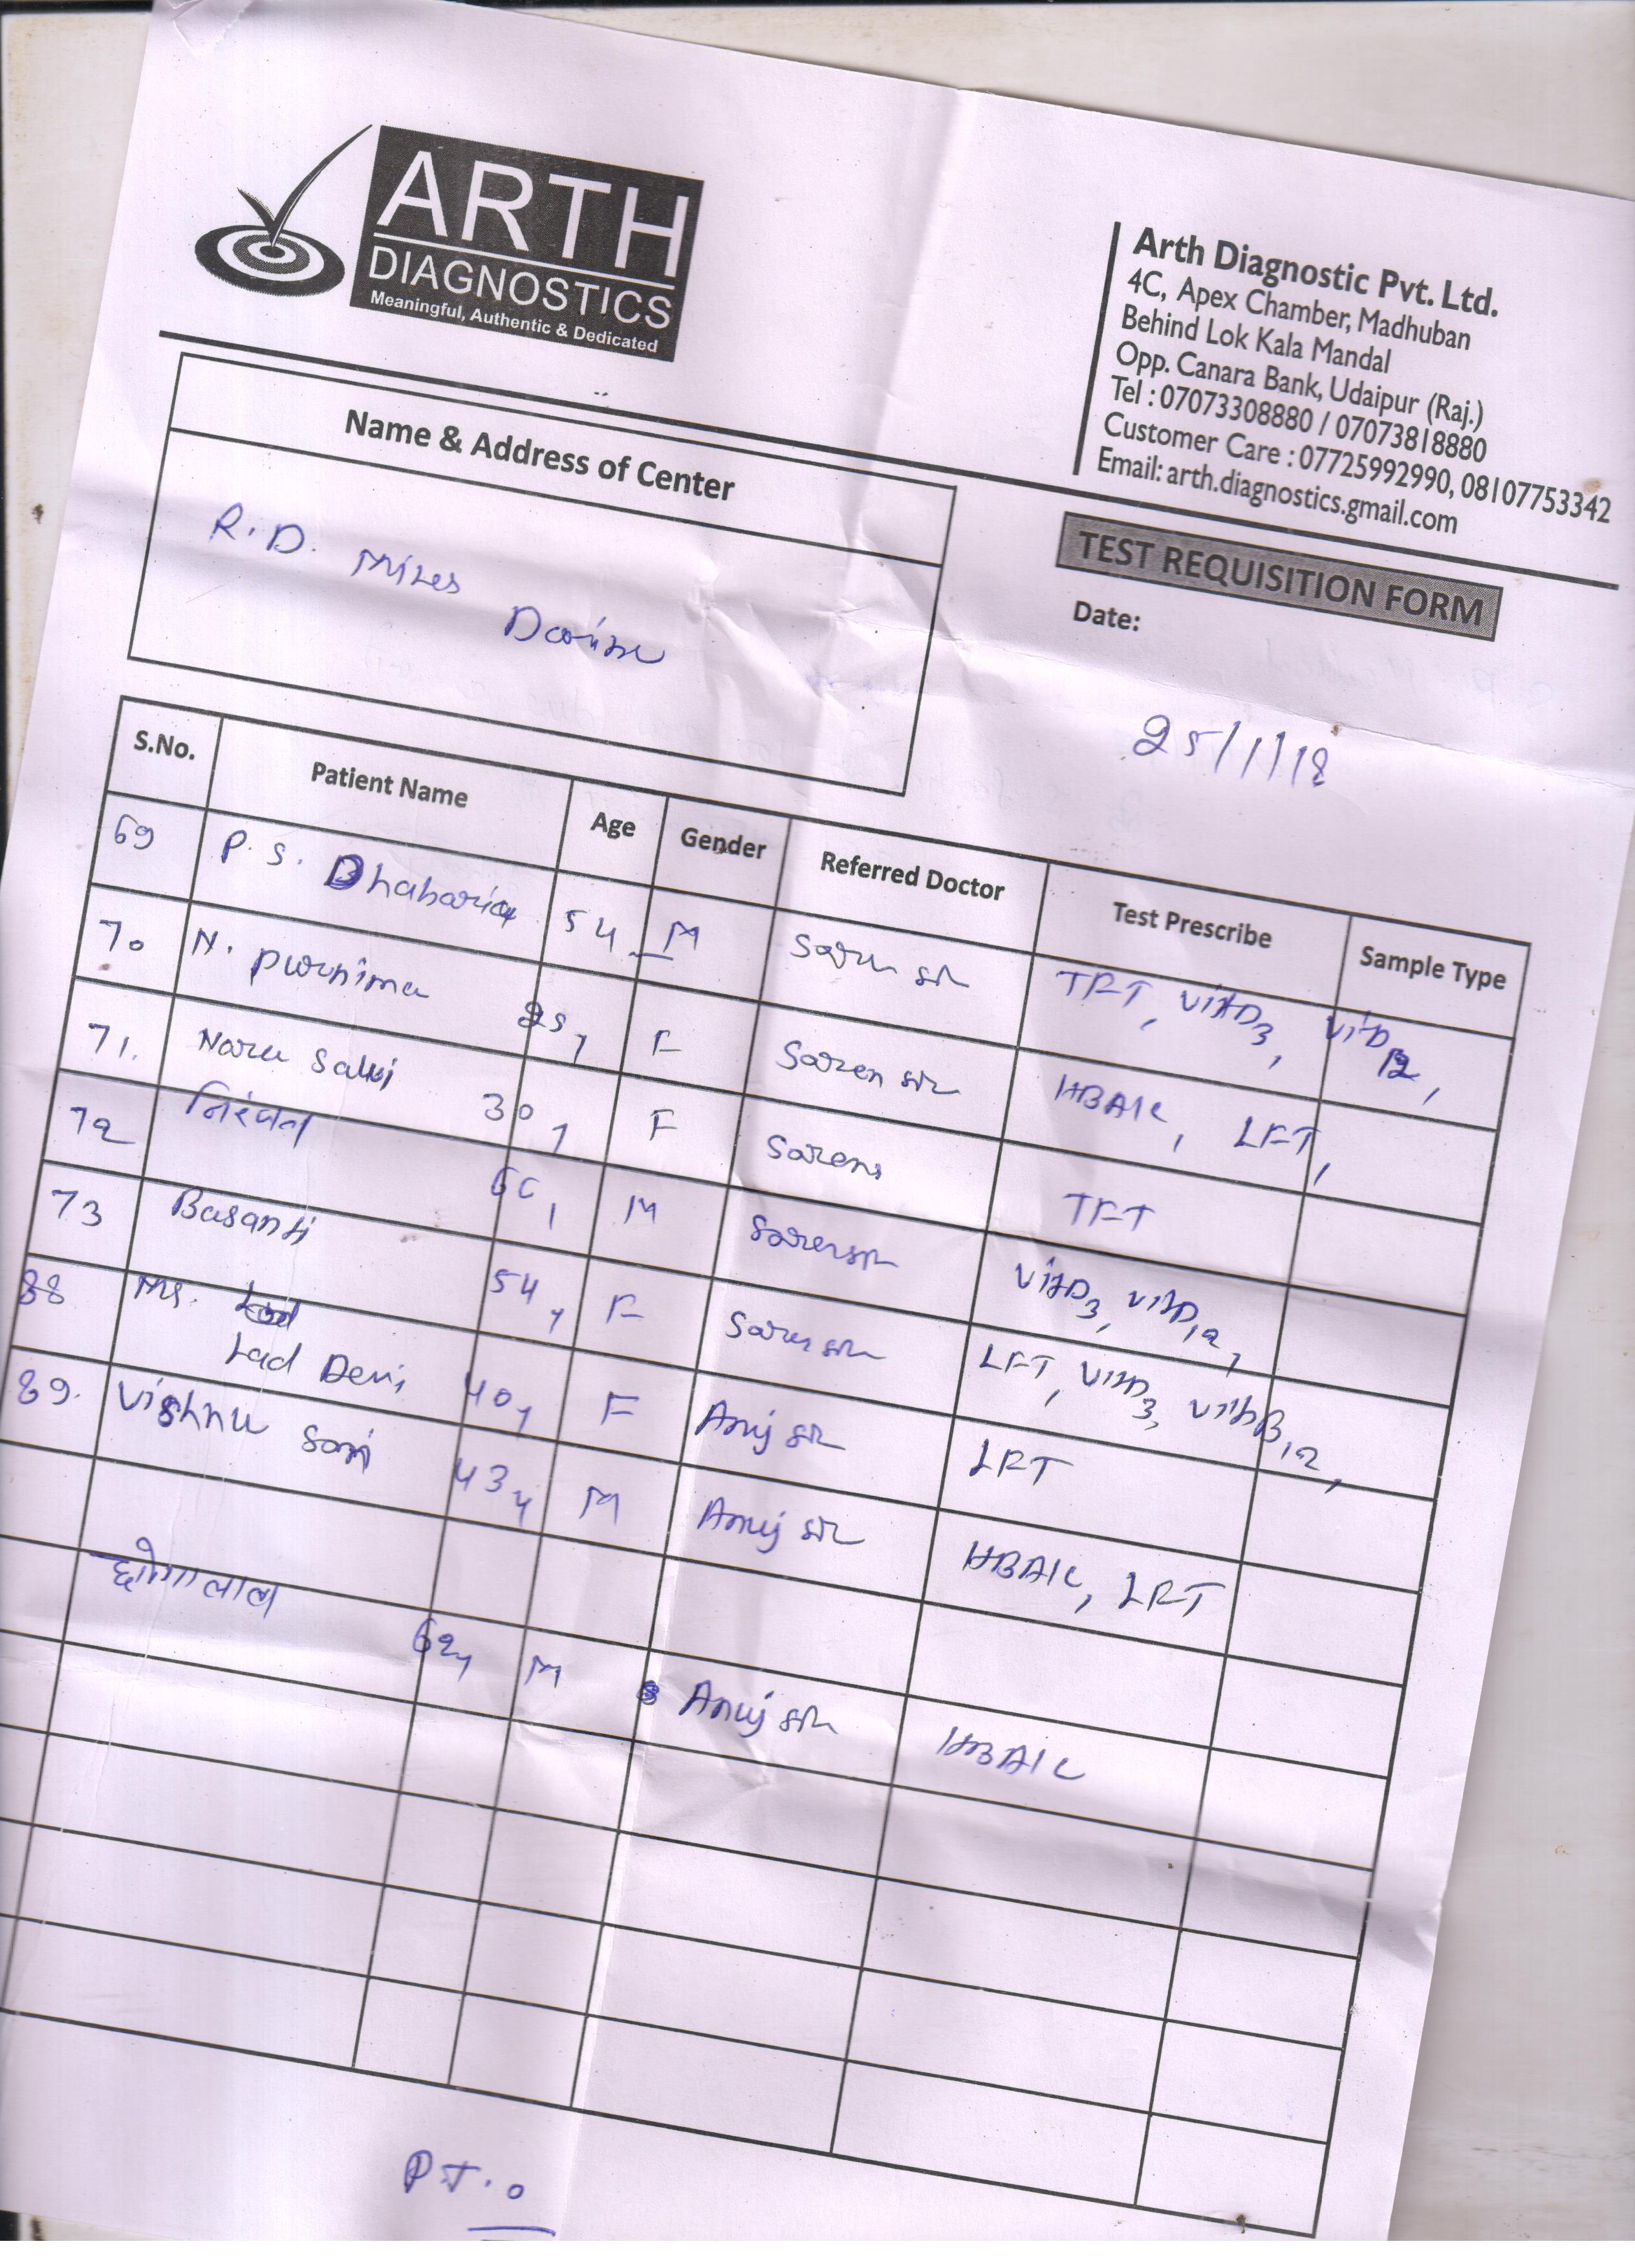 ARTH
DIAGNOSTICS
Meaningful, Authentic & Dedicated
Arth Diagnostic Pvt. Ltd.
4C, Apex Chamber, Madhuban
Behind Lok Kala Mandal
Opp. Canara Bank, Udaipur (Raj.)
Tel : 07073308880 / 07073818880
Customer Care : 07725992990, 08107753342
Email: arth.diagnostics.gmail.com
Name & Address of Center
R.D. Mines
TEST REQUISITION FORM
Date:
25/1/18
S.No. Patient Name Age Gender Referred Doctor Test Prescribe Sample Type
69 P. S. Dhabaria 54 M sr TFT, VitD3,
70 N. Purnima 25y F Saren sr HBA1c, LFT,
71. Salvi 30y F Saren TFT
72 M VitD3,
73 Basanti 54y F sr LFT, VitD3, VitB12,
88 Ms. Lad Devi 40y F Anuj sr LFT
89. Vishnu Soni 43y M Anuj sr HBA1c, LFT
62y M Anuj sr HBA1c
P.T.O